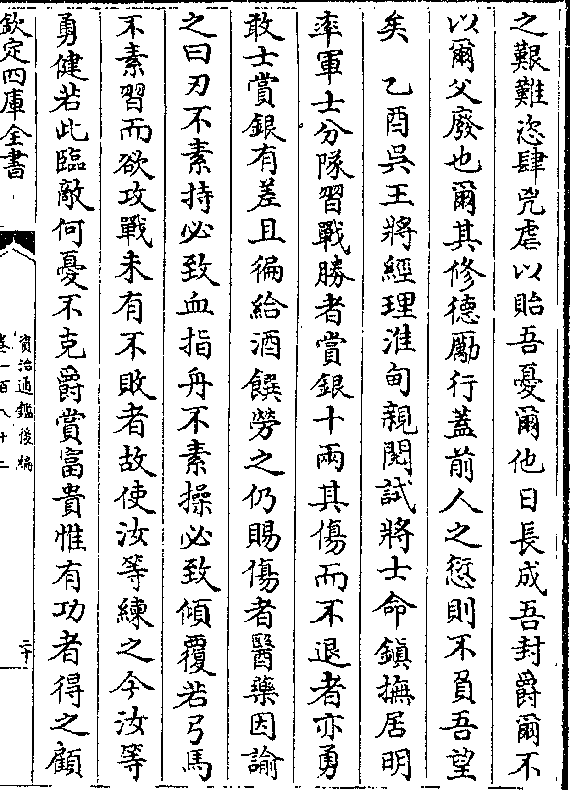 之艱難恣肆兇虐以貽吾憂爾他日長成吾封爵爾不
以爾父廢也爾其修德勵行蓋前人之愆則不負吾望
矣　乙酉吳王將經理淮甸親閱試將士命鎮撫居明
率軍士分隊習戰勝者賞銀十兩其傷而不退者亦勇
敢士賞銀有差且徧給酒饌勞之仍賜傷者醫藥因諭
之曰刃不素持必致血指舟不素操必致傾覆若弓馬
不素習而欲攻戰未有不敗者故使汝等練之今汝等
勇健若此臨敵何憂不克爵賞富貴惟有功者得之顧
欽定四庫全書
資治通鑑後編
卷一百八十二
二十